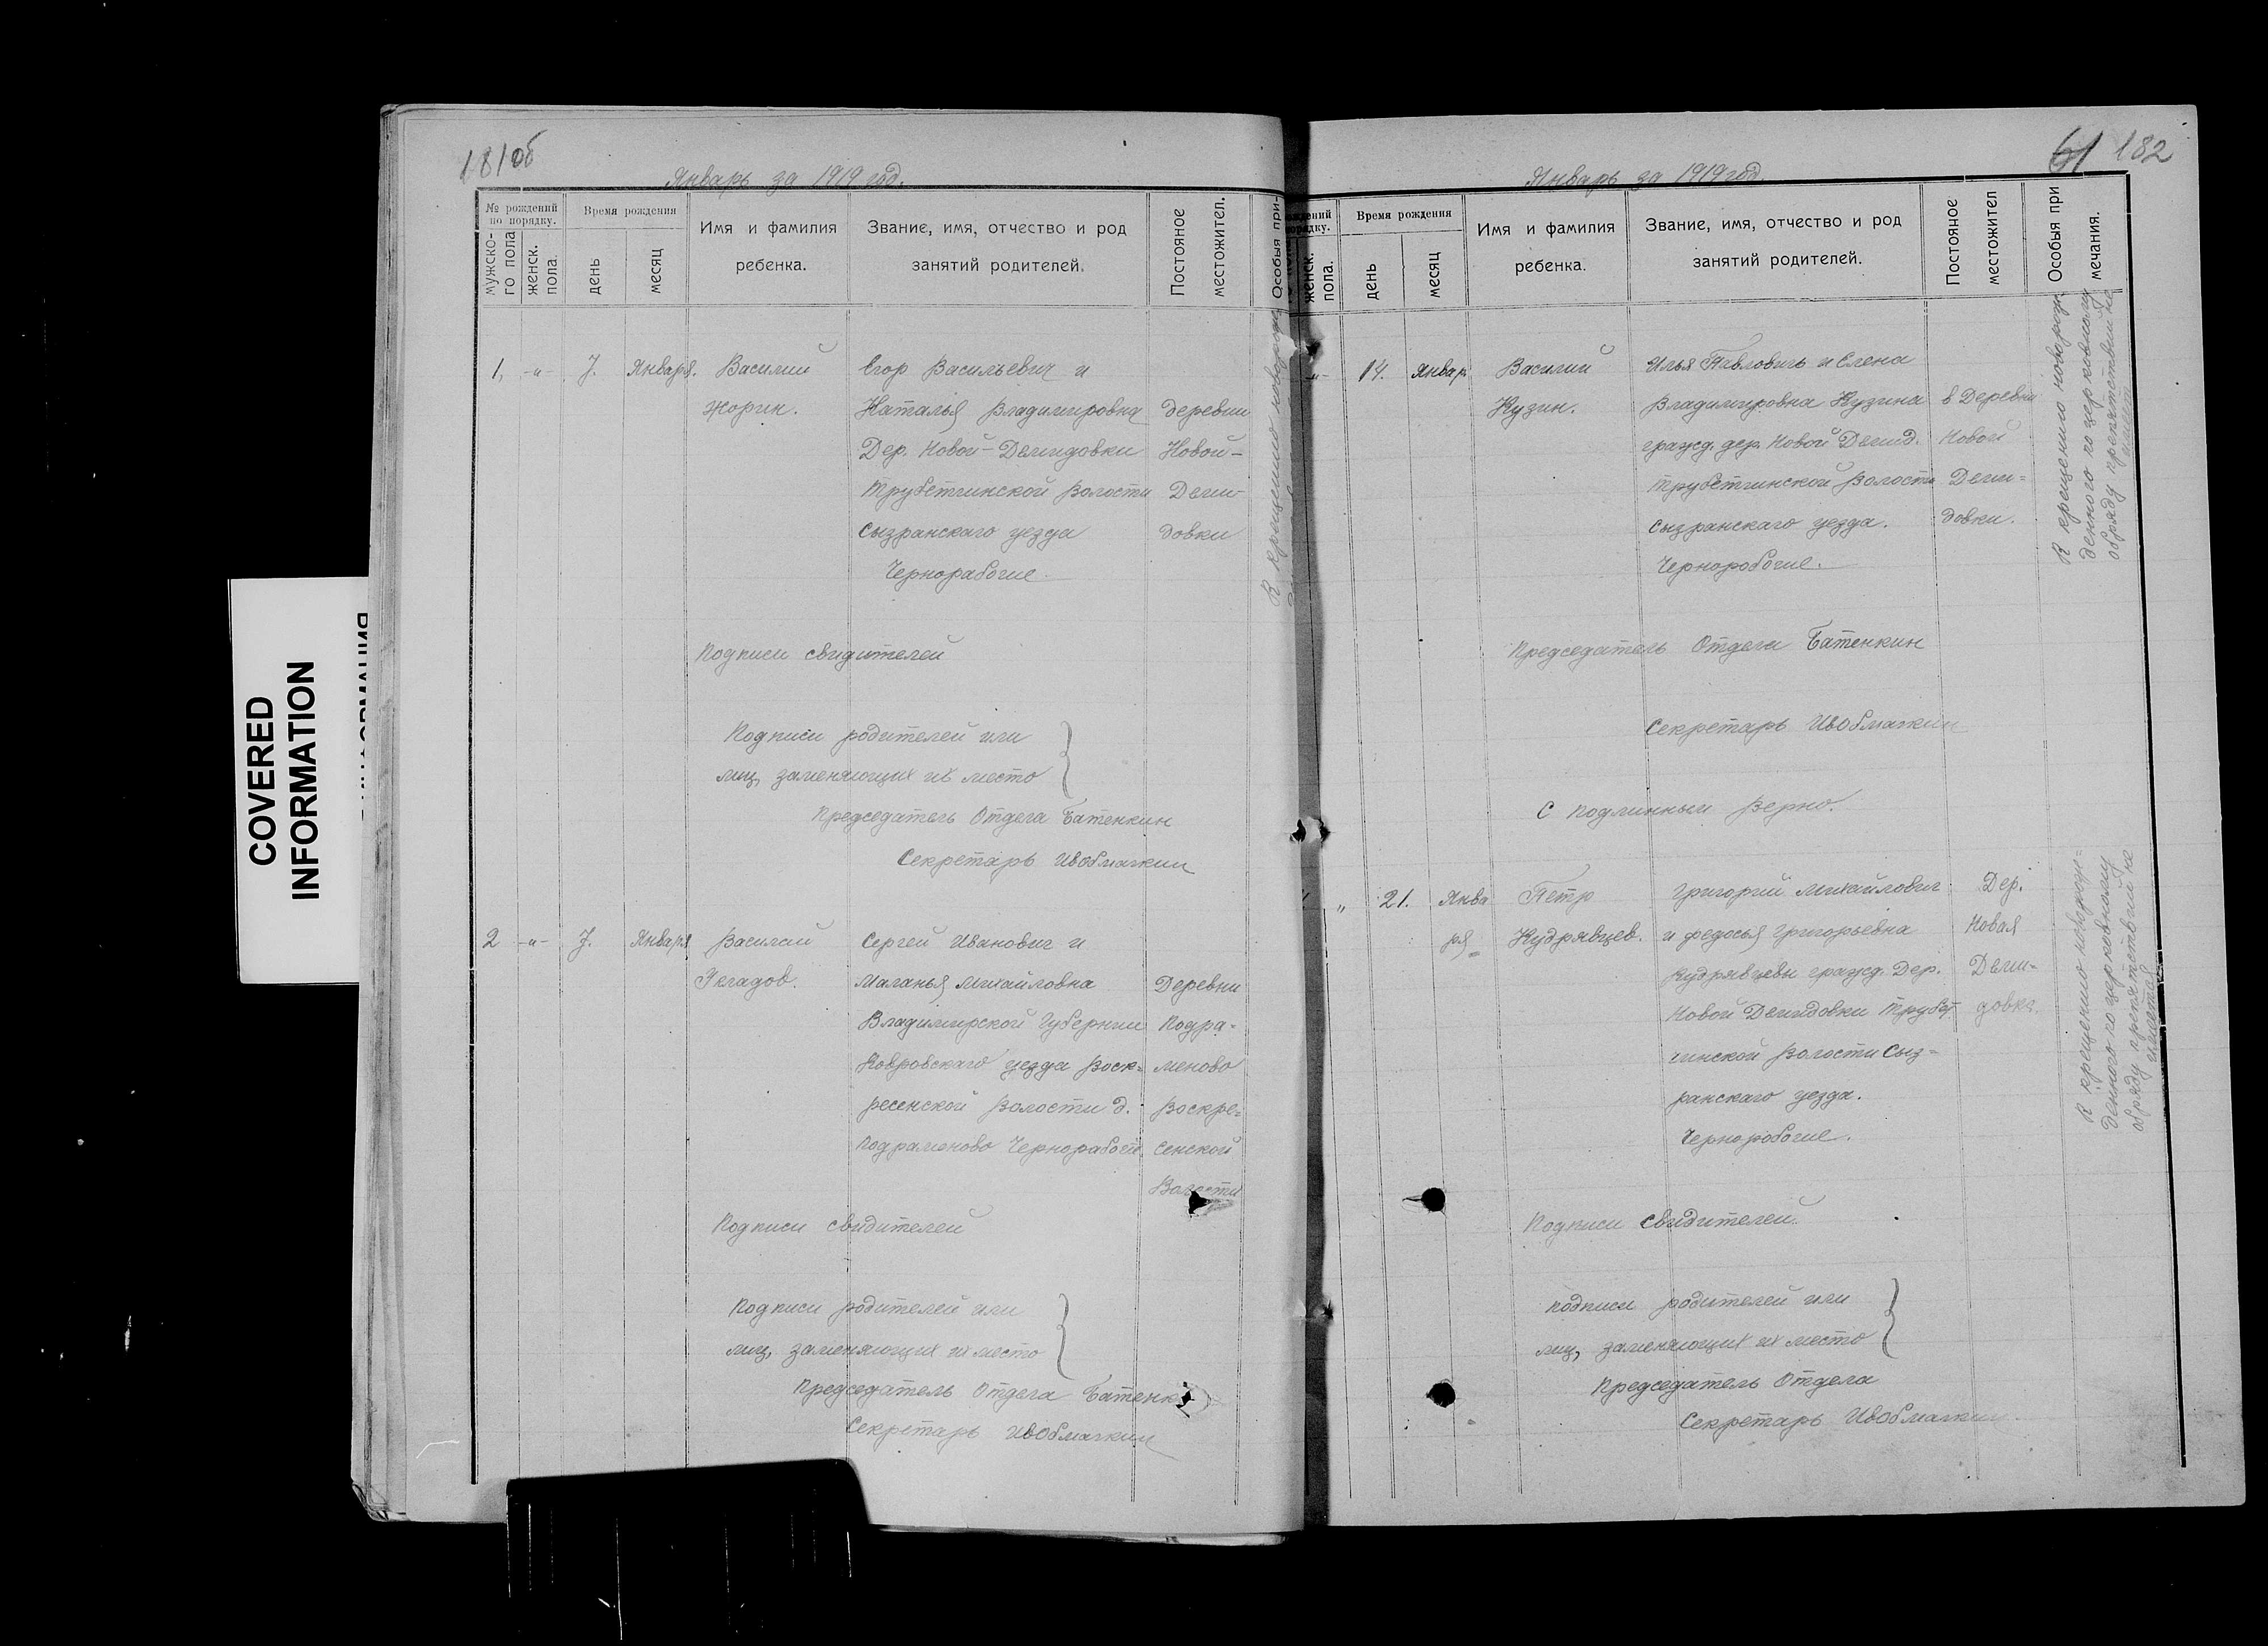 COVERED
INFORMATION
181об
Январь за 1919 год.
№ рождений
по порядку.
Время рождения
Имя и фамилия
ребенка.
Звание, имя, отчество и род
занятий родителей.
Постояное
местожител.
Особыя при-
мужско-
го пола
женск.
пола.
день
месяц
1, -"- 7. Января. Василий Егор Васильевич и
Жорин. Наталья Владимировна деревни
Дер. Новой-Демидовки Новой-
Трубетчинской Волости Деми-
Сызранскаго уезда довки
Чернорабочие.
К крещению новорож
Подписи свидителей
Подписи родителей или
лиц, заменяющих их место
Председатель Отдела Батенкин
Секретарь
2 -"- 7. Января Василий Сергей Иванович и
Маланья Михайловна Деревни
Владимирской Губернии Подра-
Ковровскаго уезда Воск- меново
ресенской Волости д. Воскре-
Подраменово Чернорабочие сенской
Волости
Подписи свидителей
Подписи родителей или
лиц, заменяющих их место
Председатель Отдела Батенк
Секретарь
61 182
Январь за 1919 год.
женск.
пола.
Время рождения
день
месяц
Имя и фамилия
ребенка.
Звание, имя, отчество и род
занятий родителей.
Постояное
местожител
Особыя при
мечания.
-"- 14. Январ Василий Илья Павловичь и Елена
Кузин. Владимировна Кузина в Деревни
гражд. дер. Новой Демид. Новой
Трубетчинской Волости Деми=
Сызранскаго уезда. довки.
Черноробочие.
К крещению новорож
денного по церковному
обряду препятствий не
имеет
Председатель Отдела Батенкин
Секретарь
С подлинным Верно.
" 21. Янва Петр Григорий Михайлович Дер.
ря= Кудрявцев. и Федосья Григорьевна Новая
Кудрявцевы гражд. Дер. Деми=
Новой Демидовки Трубет довка.
чинской Волости Сыз=
ранскаго уезда.
Черноробочие.
К крещению новорож=
денного по церковному
обряду препятствий не
имеется
Подписи свидителей.
Подписи родителей или
лиц, заменяющих их место
Председатель Отдела
Секретарь